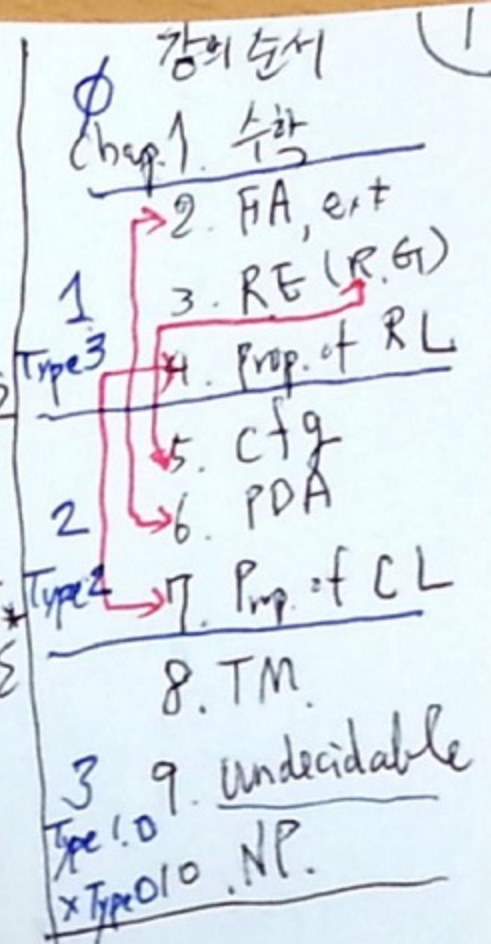 강의 순서
1
ϕ
Chap.1. 수학
2. FA, ext
3. RE (R.G)
1
Type3
4. Prop. of RL
5. cfg
2
6. PDA
Type2
7. Prop. of CL
8. TM.
3
9. undecidable
Type 1.0
x Type0
10. NP.